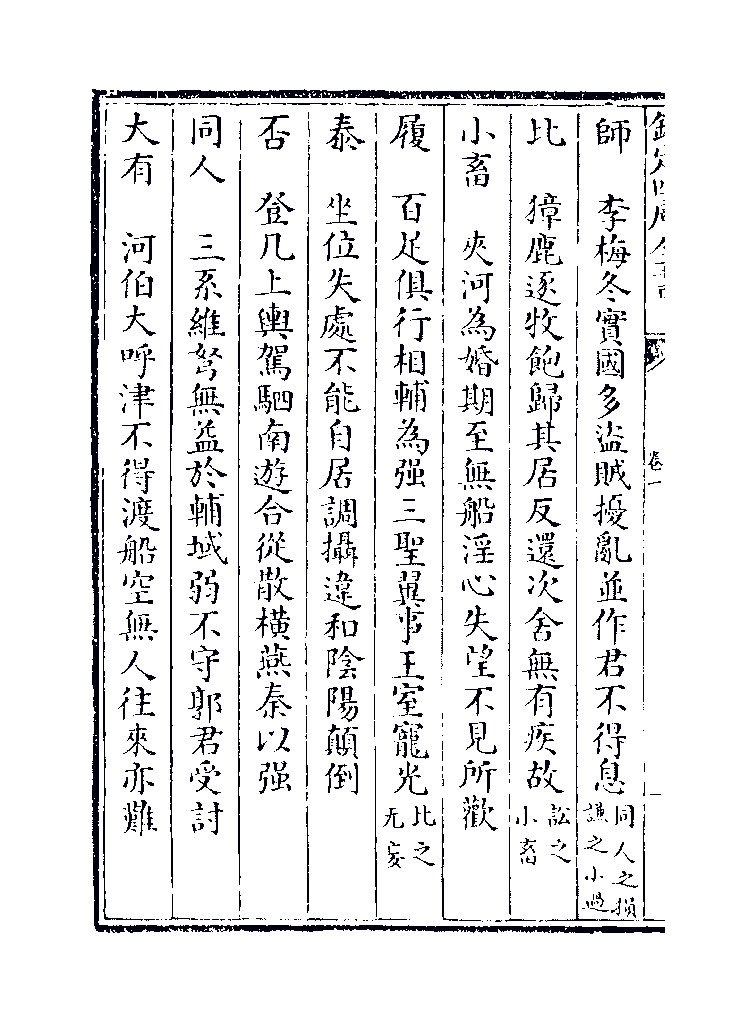 欽定四庫全書
卷一
師　李梅冬實國多盜賊擾亂並作君不得息同人之損謙之小過
比　獐鹿逐牧飽歸其居反還次舍無有疾故訟之小畜
小畜　夾河為婚期至無船淫心失望不見所歡
履　百足俱行相輔為强三聖翼事王室寵光比之无妄
泰　坐位失處不能自居調攝違和陰陽顛倒
否　登几上輿駕駟南遊合從散橫燕秦以强
同人　三系維弩無益於輔域弱不守郭君受討
大有　河伯大呼津不得渡船空無人往來亦難